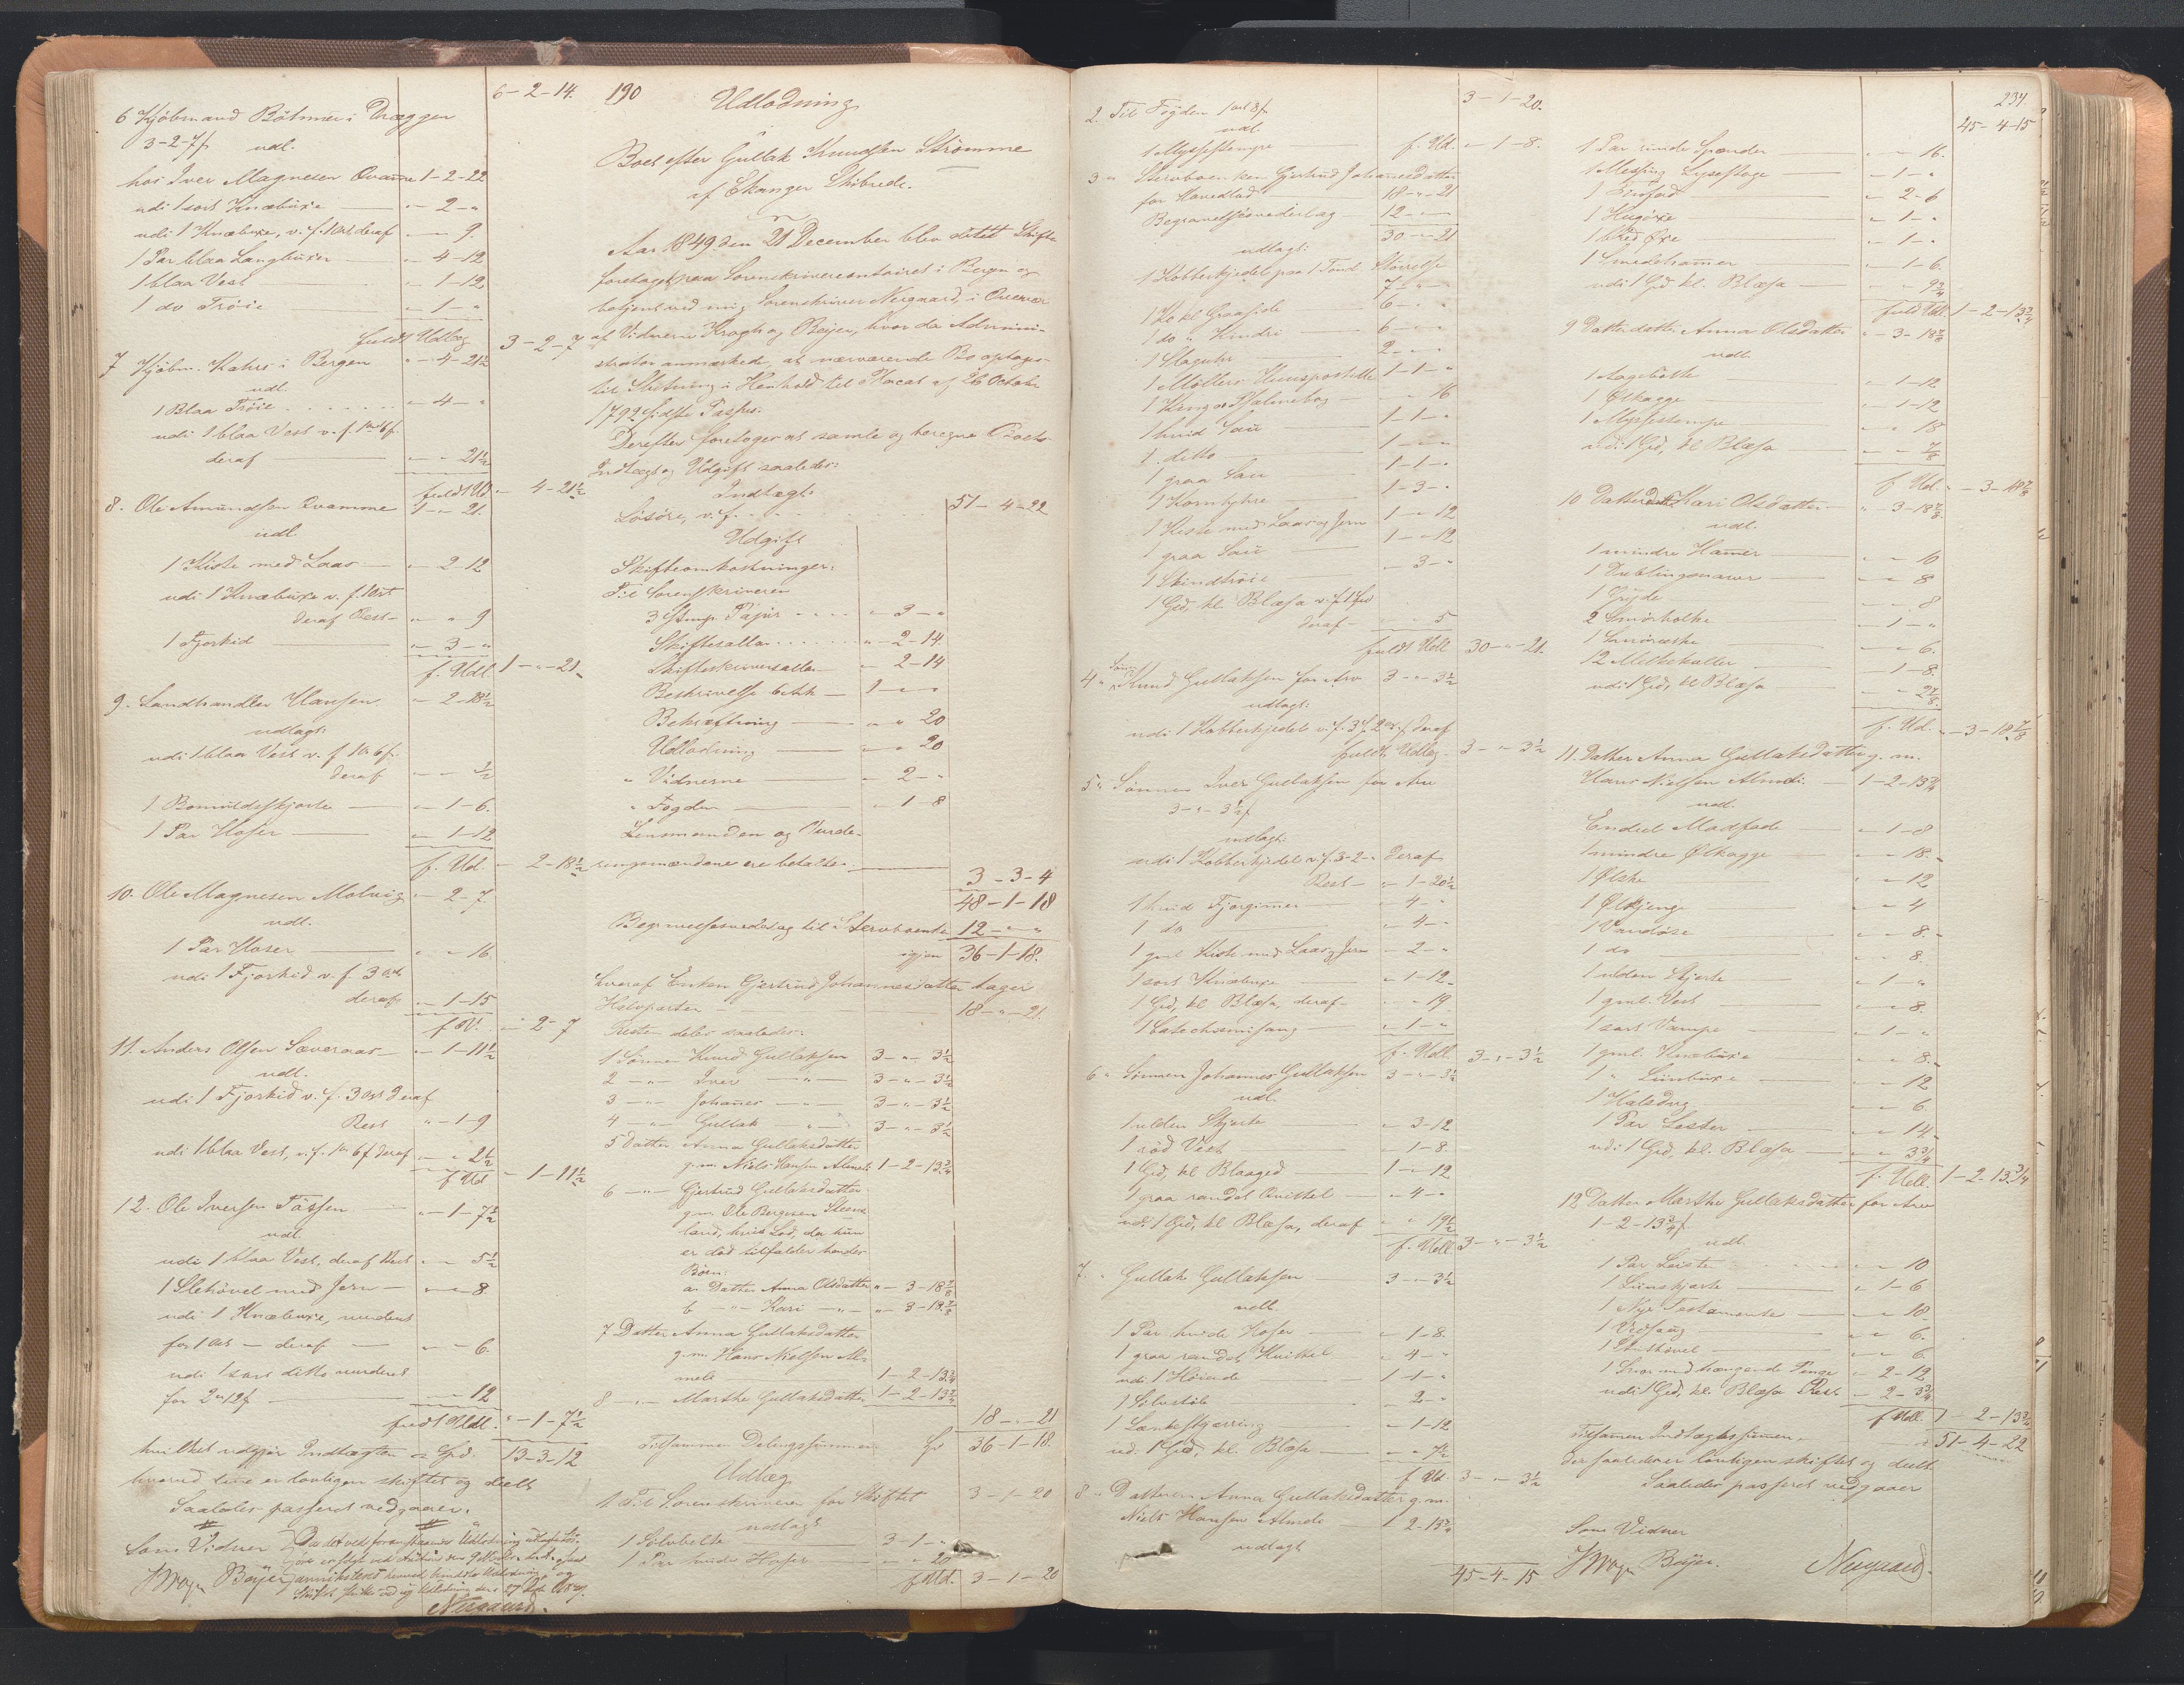 6-2-14.
6 Kjöbmand Böhmer i Dræggen
3-2-7 f udl.
hos Iver Magnesen Qvamme 1-2-22
udi 1 sort Knæbuxe - 2 - "
udi 1 Knæbuxe, v. f. 1 ort deraf " - 9.
1 Par blaa Langbuxer " 4-12
1 blaa Vest " 1-12
1 do Trøie " 1 - "
fuldt Udlæg 3-2-7
7 Kjöbm. Kahrs i Bergen " 4-21½
udl.
1 Blaa Trøie " 4 - "
udi 1 blaa Vest v. f. 1 ort 6 f.
deraf " " 21½
fuldt Ud. " 4-21½
8. Ole Amundsen Qvamme 1 - " 21.
udl
1 Kiste med Laas " 2-12
udi 1 Knæbuxe v. f. 1 ort
deraf Rest " " 9
1 Fjorkid " 3 - "
f. Udl. 1 - " - 21.
9. Landhandler Hansen " 2-18½
udlagt:
udi 1 blaa Vest v. f 1 ort 6 f.
deraf " - ½
1 Bomuldsskjorte " 1-6.
1 Par Hoser " 1-12
f. Ud. " 2-18½
10. Ole Magnesen Molvig " 2-7.
udl.
1 Par Hoser " " 16.
udi 1 Fjorkid v. f. 3 ort
deraf " 1-15
f. U. " 2-7
11. Anders Olsen Sæveraas " 1-11½
udl.
udi 1 Fjorkid v. f. 3 ort deraf
Rest " 1-9
udi 1 blaa Vest, v. f. 1 ort 6 f deraf " " 2½
f Ud " 1-11½
12. Ole Iversen Tössen " 1-7½
udl
udi 1 blaa Vest, deraf Rest " " 5½
1 Slehövel med Jern " " 8
udi 1 Knæbuxe, vurderet
for 1 ort deraf " " 6.
udi 1 sort ditto vurderet
for 2 ort 12 f " " 12
fuldt Udl. " 1-7½
hvilket udgjör Indtægten 13-3-12
hvorved dette er lovligen skiftet og deelt
Saaledes passeret vedgaaer.
Som Vidner
Beijer
Neegaard.
190
Udlodning
Boet efter Gullak Knudsen Strømme
af Ekanger Skibrede.
Aar 1849 den 21 December blev dette Skifte
foretaget paa Sorenskrivercontoiret i Bergen og
betjent ved mig Sorenskriver Neegaard, i Overvær
af Vidnerne Kragh og Beijer, hvor da Admini-
strator anmærkede at nærværende Bo optages
til Slutning i Henhold til Placat af 26 October
1792 sidste Passus.
Derefter foretoges at samle og beregne Boets
Indtægt og Udgift saaledes:
Indtægt:
Løsöre, v. f. 51-4-22
Udgift
Skifteomkostninger:
Til Sorenskriveren
3 Stemp. Papiir " 3 - "
Skiftesallær " 2-14
Skifteskriversallær " 2-14
Beskrivelse 6 Ark 1 - "
Bekræftning " " 20
Udlodning " " 20
" Vidnerne " 2 - "
" Fogden " 1-8
Lensmanden og Vurde-
ringsmændene ere betalte. 3-3-4
48-1-18
Begravelsesvederlag til Stervboenke 12 - " "
igjen 36-1-18.
hvoraf Enken Gjertrud Johannesdatter tager
Halvparten 18 - " - 21.
Resten deles saaledes:
1 Sønnen Knud Gullaksen 3 - " - 3½
2 - " - Iver - " - 3 - " - 3½
3 - " - Johannes - " - 3 - " - 3½
4 - " - Gullak - " - 3 - " - 3½
5 Datter Anna Gullaksdatter
g. m. Niels Hansen Almelt 1-2-13¾
6 - " - Gjertrud Gullaksdatter
g. m. Ole Bergesen Steens-
land, hvis Lod, da hun
er död tilfalder hendes
Börn:
a. Datter Anna Olsdatter " 3-18⅞
b - " - Kari - " - " 3-18⅞
7 Datter Anna Gullaksdatter
g. m. Hans Nielsen Al-
meli 1-2-13¾
8 - " - Marthe Gullaksdatter 1-2-13¾
18 - " - 21
Tilsammen Delingssummen 36-1-18.
Udlæg
1 Til Sorenskriveren for Skiftet 3-1-20
udlagt
1 Sölvbelte 3-1 - "
1 Par hvide Hoser " " 20
f Ud. 3-1-20
3-1-20.
2. Til Fogden 1 ort 8 f.
udl.
1 Myssestampe f. Ud. " 1-8.
3 " Stervboenken Gjertrud Johannesdatter
for Hovedlod 18 - " - 21
Begravelsesvederlag 12 - " -
30 - " 21
udlagt:
1 Kobberkjedel paa 1 Tønd. Størrelse 7 - "
1 Ko kl. Graaside 6 - "
1 do " Kindri 6 - "
1 Slaguhr 2 - "
1 Møllers Huuspostille 1-1 - "
1 Kingos Psalmebog " 16
1 hvid Sau 1-1 - "
1. ditto 1 - " "
1 graa Sau 1-1 - "
1 Kornbyhre 1-3 - "
1 Kiste med Laas og Jern 1 - " 12
1 graa Sau 1 - " 12
1 Skindtrøie - 3 - "
1 Ged, kl. Blæsa v. f. 1 Spd
deraf " 5
fuldt Udl 30 - " - 21.
4 " Sønnen Knud Gullaksen for Arv 3 - " 3½
udlagt:
udi 1 Kobberkjedel v. f. 3 f. 2 ort, deraf
fuldt Udlæg 3 - " 3½
5 " Sønnen Iver Gullaksen for Arv
3 - " - 3½ f
udlagt:
udi 1 Kobberkjedel v. f. 3-2 - " deraf
Rest " 1-20½
1 hvid Fjorgimmer " 4 - "
1 do " 4 - "
1 gml Kiste med Laas og Jern " 2 - "
1 sort Knæbuxe " 1-12
1 Ged, kl. Blæsa, deraf " " 19
1 " 1 - "
f. Udl. 3 - " 3½
6 " Sønnen Johannes Gullaksen 3 - " 3½
udl.
1 ulden Skjorte " 3-12
1 röd Vest " 1-8.
1 Ged, kl Blaaged 1 - " 12
1 graa randet Qvittel " 4 - "
udi 1 Ged, kl Blæsa, deraf " " 19½
f. Udl 3 - " 3½
7. " Gullak Gullaksen 3 - " 3½
udl.
1 Par hvide Hoser " 1-8.
1 graa randet Kvittel " 4 - "
udi 1 Høiende 1-1 - "
1 Sölvstöb " 2 - "
1 Lænkestjærring " 1-12
udi 1 Ged, kl. Blæsa " " 7½
f Ud. 3 - " 3½
8 " Datteren Anna Gullaksdatter g. m.
Niels Hansen Almeli 1 2-13¾
udlagt
45-4-15
234.
45-4-15
1 Par runde Spænder " " 16.
1 Messing Lysestage " 1 - "
1 Tinfad " 2-6
1 Hugöxe " 1 - "
1 bred Øxe " 1 - "
1 Smedehammer " 1-6.
udi 1 Ged kl. Blæsa " " 9¾
fuld Udl. 1-2-13¾
9 Datterdatter Anna Olsdatter " 3-18⅞
udl.
1 " 1-12
1 Ølkagge " 1-12
1 Myssestampe " " 18
udi 1 Ged, kl Blæsa " " ⅞
f. Ud. " 3-18⅞
10 Datterdatter Kari Olsdatter " 3-18⅞
udl.
1 mindre Hammer " " 10
1 " " 8
1 Bryde " " 8
2 Smörholke " 1 - "
1 Smöræske " " 6.
12 Melkekoller " 1-8.
udi 1 Ged, kl Blæsa " " 2⅞
f. Ud. " 3-18⅞
11. Datter Anna Gullaksdatter g. m.
Hans Nielsen Almeli 1-2-13¾
udl.
Endeel Madfade " 1-8
1 mindre Ølkagge " " 18.
1 Øltke " " 12
1 " 4
1 Vandöse " " 8.
1 do " " 8.
1 ulden Skjorte " 1 - "
1 gml. Vest " " 8.
1 sort Vampe " 1 - "
1 gml. Knæbuxe " " 8.
1 " Liinbuxe " " 12
1 Halsdug " " 6.
1 Par Lester " " 14
udi 1 Ged, kl. Blæsa " " 3¾
f. Udl. 1-2-13¾
12 Datter Marthe Gullaksdatter for Arv
1-2-13¾ f.
udl.
1 Par Leister " " 10
1 Liinskjorte " 1-6
1 Nye Testamente " " 18
1 Vedsaug " " 6.
1 " " 6
1 " 2-12
udi 1 Ged, kl. Blæsa Rest " 2-3¾
f Udl. 1-2-13¾
Tilsammen Indtægtssummen 51-4-22
der saaledes er lovligen skiftet og deelt
Saaledes passeret vedgaaer
Som Vidner
Beijer.
Neegaard.